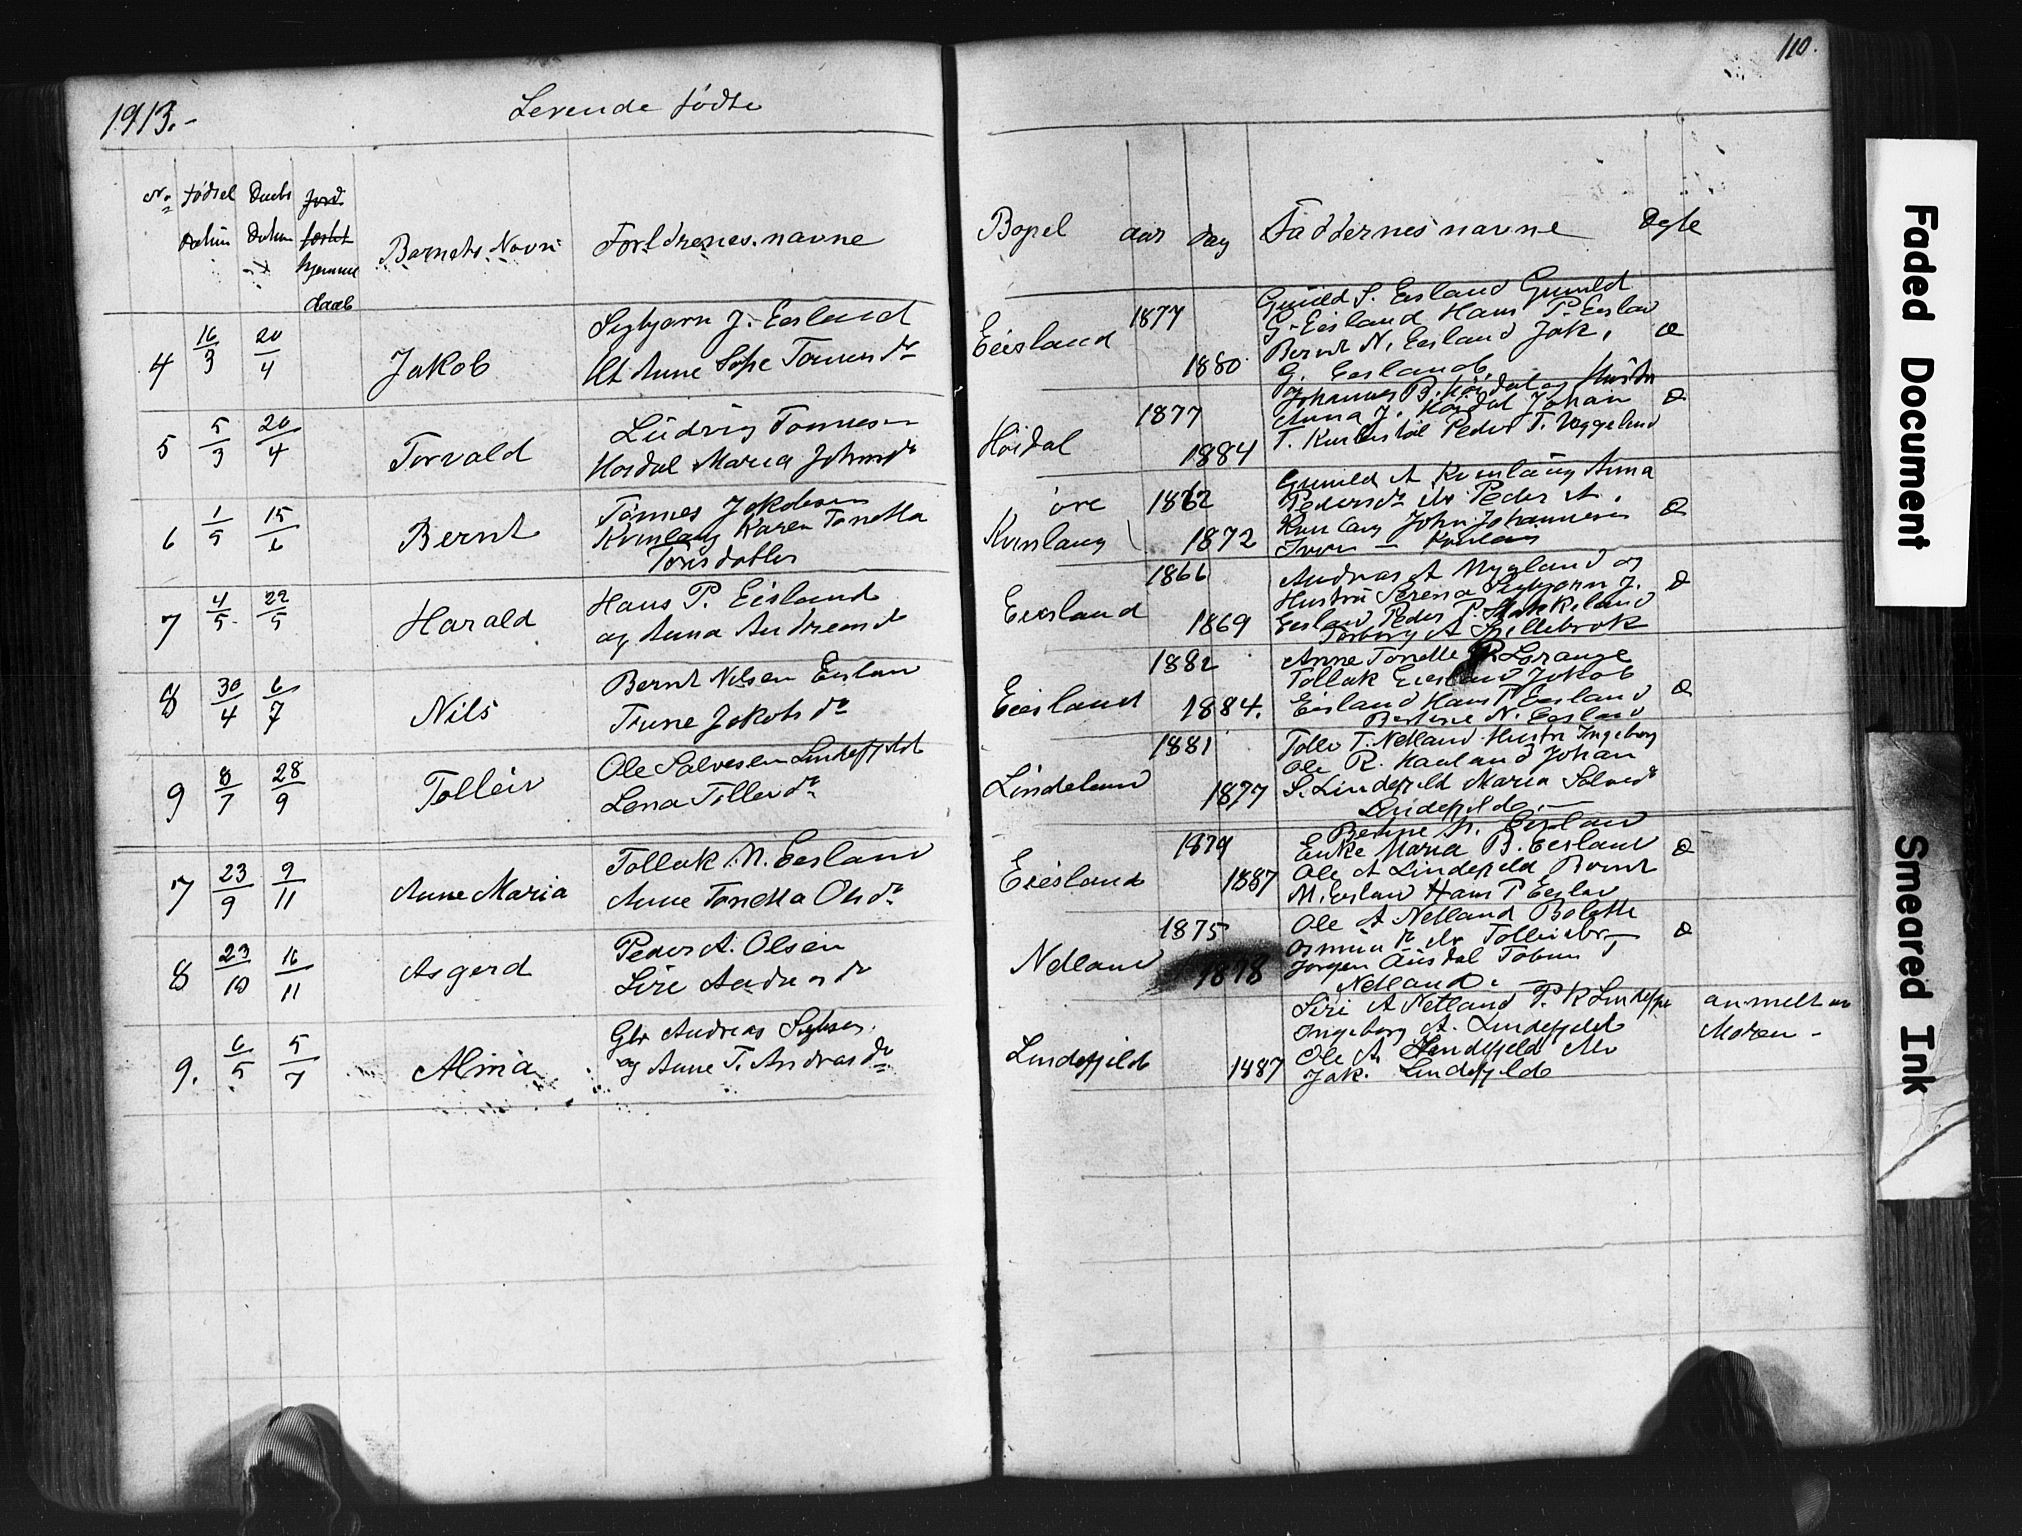 1913.-
Levende fødte
110.
No Fødsel Daabs Jord
datum Datum fæstet
hjemme
daab
Barnets Navn
Forældrenes navne
Bopel aar dag Faddernes navne Døbte
4 16/3 20/4 Jakob
Sigbjørn J. Eesland
Anne Sofie Tønnes dr
Eiesland 1877
1880
Gunild S. Eesland Gunild
G. Eesland Hans P. Eeslan
Bernt N. Eesland Jak.
G. Eesland
5 5/3 20/4 Torvald
Ludvig Tønnesen
Høidal Maria Johns dr
Høidal 1877
1884
Johannes B. Høidal og Hustru
Anna J. Høidal Johan
T. Peder T. Veggeland
6 1/5 15/6 Bernt
Tønnes Jakobsen
Kvinlaug Karen Tonetta
Tønisdatter
øvre
Kvinlaug 1862
1872
Gunild A Kvinlaug Anna
Pedersdr do Peder A.
Kvinlaug John Johannesen
Iver — Kvinlaug
7 4/5 22/5 Harald
Hans P. Eesland
og Anna Andreas dr
Eiesland 1866
1869
Andreas A Nygland og
Hustru Serena Sigbjørn J.
Eesland Peder P. Stakkeland
Torborg A Fillebrok
8 30/4 6/7 Nils
Bernt Nilsen Eeslan
Trine Jakobs dr
Eiesland 1882
1884.
Anne Tonette R. Lorange
Tollak Eiesland Jakob
Eiesland Hans P. Eesland
Bertine N. Eesland
9 8/7 28/9 Tolleiv
Ole Salvesen Lindefjeld
Lena Tollev dr
Lindeland 1881
1877
Tollev T. Netland Hustru Ingeborg
Ole R. Haaland Johan
S. Lindefjeld Maria Salves dr
Lindefjeld —
7 23/9 9/11 Anne Maria
Tollak N. Eesland
Anne Tonetta Ols dr
Eiesland 1879
1887
Bertine N. Eeslan
Enke Maria B. Eesland
Ole A Lindefjeld Bernt
N. Eeslan Hans P Eeslan
8 23/10 16/11 Asgerd
Peder A. Olsen
Siri Andreas dr
Netland 1875
1878
Ole A Netland Bolette
Osmun R do Tolleiv
Jørgen Øisdal Tobias T
Netland. —
9. 6/5 5/7 Alina
Gbr Andreas Sigbjørns.
og Anne T. Andreas dr
Lindefjeld 1887
Siri A Netland P. K Lindefje
Ingeborg A. Lindefjeld
Ole A Lindefjeld do
Jak. Lindefjeld
anmelt av
Moren -
Faded Document
Smeared Ink